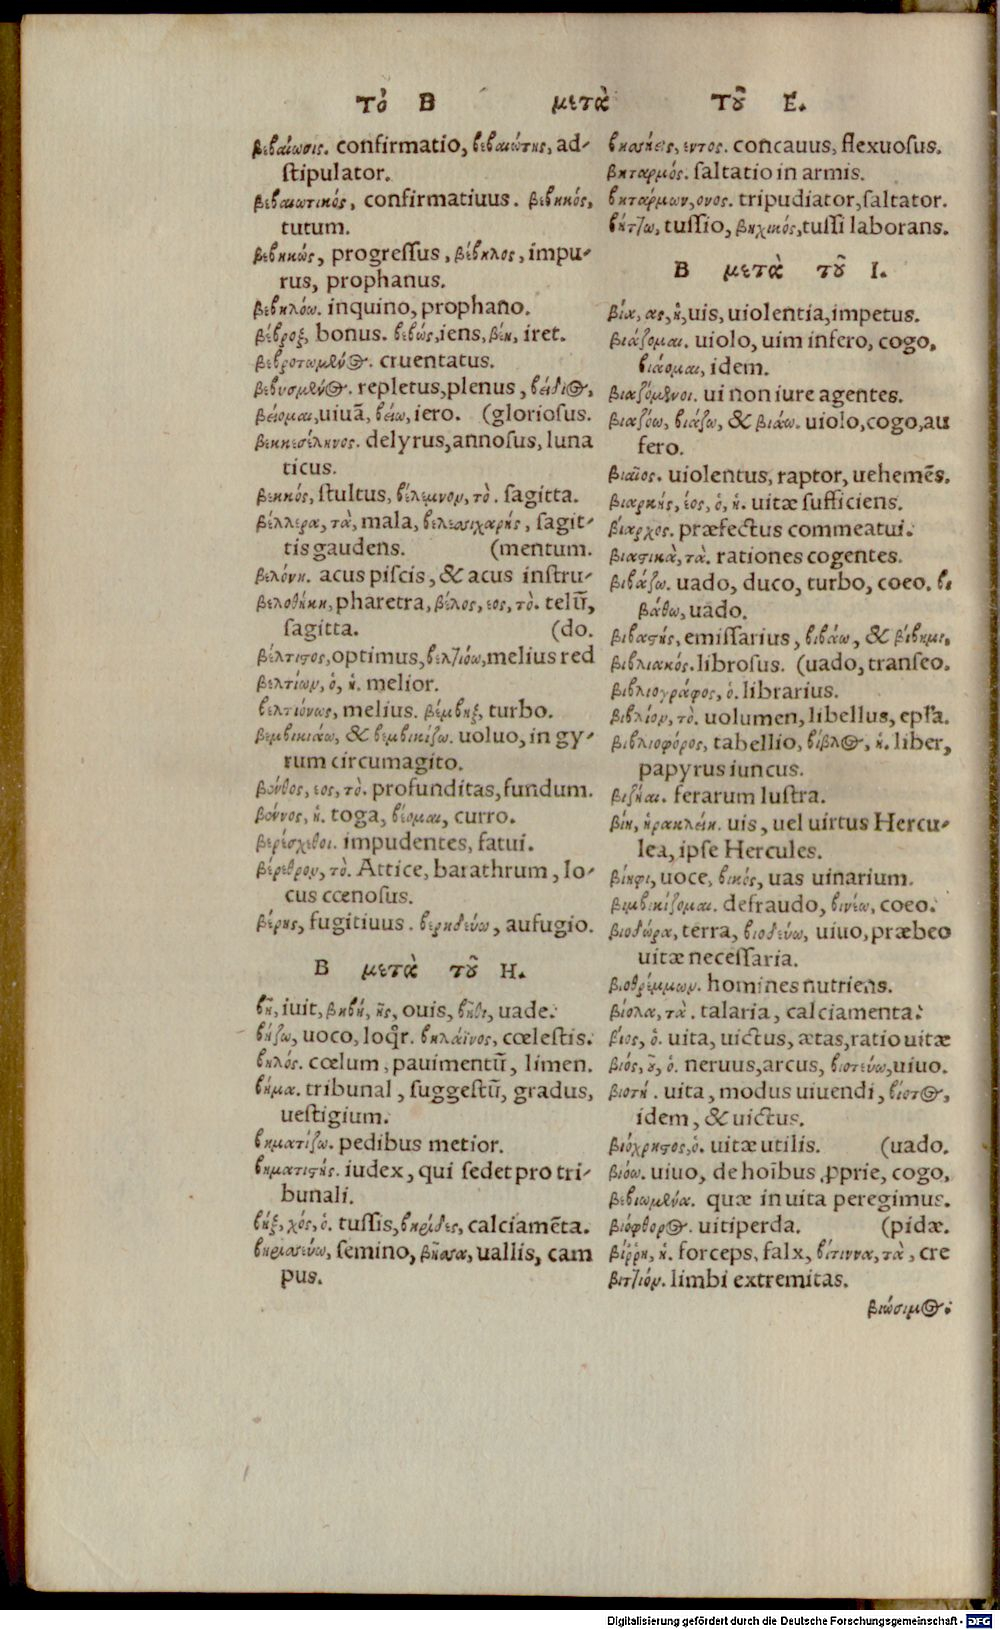 τὸ Β μετὰ τοῦ Ε.
βεβαίωσις. confirmatio, βεβαιώτης, ad-
stipulator.
βεβαιωτικός, confirmatiuus. βεβηκός,
tutum.
βεβηκώς, progressus, βέβηλος, impu-
rus, prophanus.
βεβηλόω. inquino, prophano.
βέβροξ, bonus. βεβώς, iens, βέη, iret.
βεβροτωμένος. cruentatus.
βεβυσμένος. repletus, plenus, βέιδιος,
βείομαι, uiuã, βέιω, iero. (gloriosus.
βεκκεσέληνος. delyrus, annosus, luna
ticus.
βεκκός, stultus, βέλεμνον, τὸ. sagitta.
βέλλερα, τὰ, mala, βελεσσιχαρής, sagit-
tis gaudens. (mentum.
βελόνη. acus piscis, & acus instru-
βελοθήκη, pharetra, βέλος, εος, τὸ. telũ,
sagitta. (do.
βέλτιστος, optimus, βελτιόω, melius red
βελτίων, ὁ, ἡ. melior.
βελτιόνως, melius. βέμβηξ, turbo.
βεμβικιάω, & βεμβικίζω. uoluo, in gy-
rum circumagito.
βένθος, εος, τὸ. profunditas, fundum.
βέννος, ἡ. toga, βέομαι, curro.
βερέσχεθοι. impudentes, fatui.
βέρεθρον, τὸ. Attice, barathrum, lo-
cus cœnosus.
βέρης, fugitiuus. βερηδεύω, aufugio.
Β μετὰ τοῦ Η.
βῆ, iuit, βηβή, ῆς, ouis, βῆθι, uade.
βήζω, uoco, loqr̃. βηλάϊνος, cœlestis.
βηλός. cœlum, pauimentũ, limen.
βῆμα. tribunal, suggestũ, gradus,
uestigium.
βηματίζω. pedibus metior.
βηματιστής. iudex, qui sedet pro tri-
bunali.
βήξ, χός, ὁ. tussis, βηρίδες, calciamẽta.
βηριασεύω, semino, βῆσσα, uallis, cam
pus.
βησσήεις, εντος. concauus, flexuosus.
βηταρμός. saltatio in armis.
βητάρμων, ονος. tripudiator, saltator.
βήττω, tussio, βηχικός, tussi laborans.
Β μετὰ τοῦ Ι.
βία, ας, ἡ, uis, uiolentia, impetus.
βιάζομαι. uiolo, uim infero, cogo,
βιάομαι, idem.
βιαζόμενοι. ui non iure agentes.
βιαζόω, βιάζω, & βιάω. uiolo, cogo, au
fero.
βιαῖος. uiolentus, raptor, uehemẽs.
βιαρκής, έος, ὁ, ἡ. uitæ sufficiens.
βίαρχος. præfectus commeatui.
βιαστικὰ, τὰ. rationes cogentes.
βιβάζω. uado, duco, turbo, coeo. βι
βάθω, uado.
βιβαστής, emissarius, βιβάω, & βίβημι,
βιβλιακός. librosus. (uado, transeo.
βιβλιογράφος, ὁ. librarius.
βιβλίον, τὸ. uolumen, libellus, epl̃a.
βιβλιοφόρος, tabellio, βίβλος, ἡ. liber,
papyrus iuncus.
βιζῆαι. ferarum lustra.
βίη, ἡρακλείη. uis, uel uirtus Hercu-
lea, ipse Hercules.
βίηφι, uoce, βικός, uas uinarium.
βιμβικίζομαι. defraudo, βινέω, coeo.
βιοδώρα, terra, βιοδεύω, uiuo, præbeo
uitæ necessaria.
βιοθρέμμων. homines nutriens.
βίολα, τὰ. talaria, calciamenta.
βίος, ὁ. uita, uictus, ætas, ratio uitæ
βιός, οῦ, ὁ. neruus, arcus, βιοτεύω, uiuo.
βιοτή. uita, modus uiuendi, βίοτος,
idem, & uictus.
βιόχρηστος, ὁ. uitæ utilis. (uado.
βιόω. uiuo, de hoĩbus ꝓprie, cogo,
βεβιωμένα. quæ in uita peregimus.
βιόφθορος. uitiperda. (pidæ.
βίῤῥη, ἡ. forceps, falx, βίτιννα, τὰ, cre
βιττιόν. limbi extremitas.
βιώσιμος.
Digitalisierung gefördert durch die Deutsche Forschungsgemeinschaft - DFG